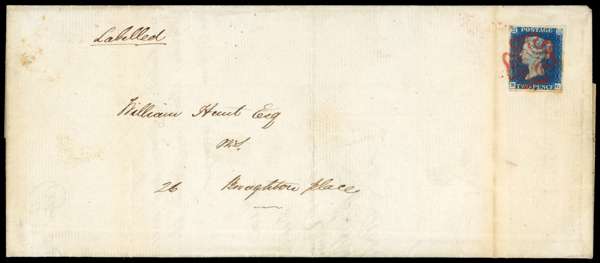 Labelled
POSTAGE
TWO PENCE
William Hunt Esq
26 Broughton place